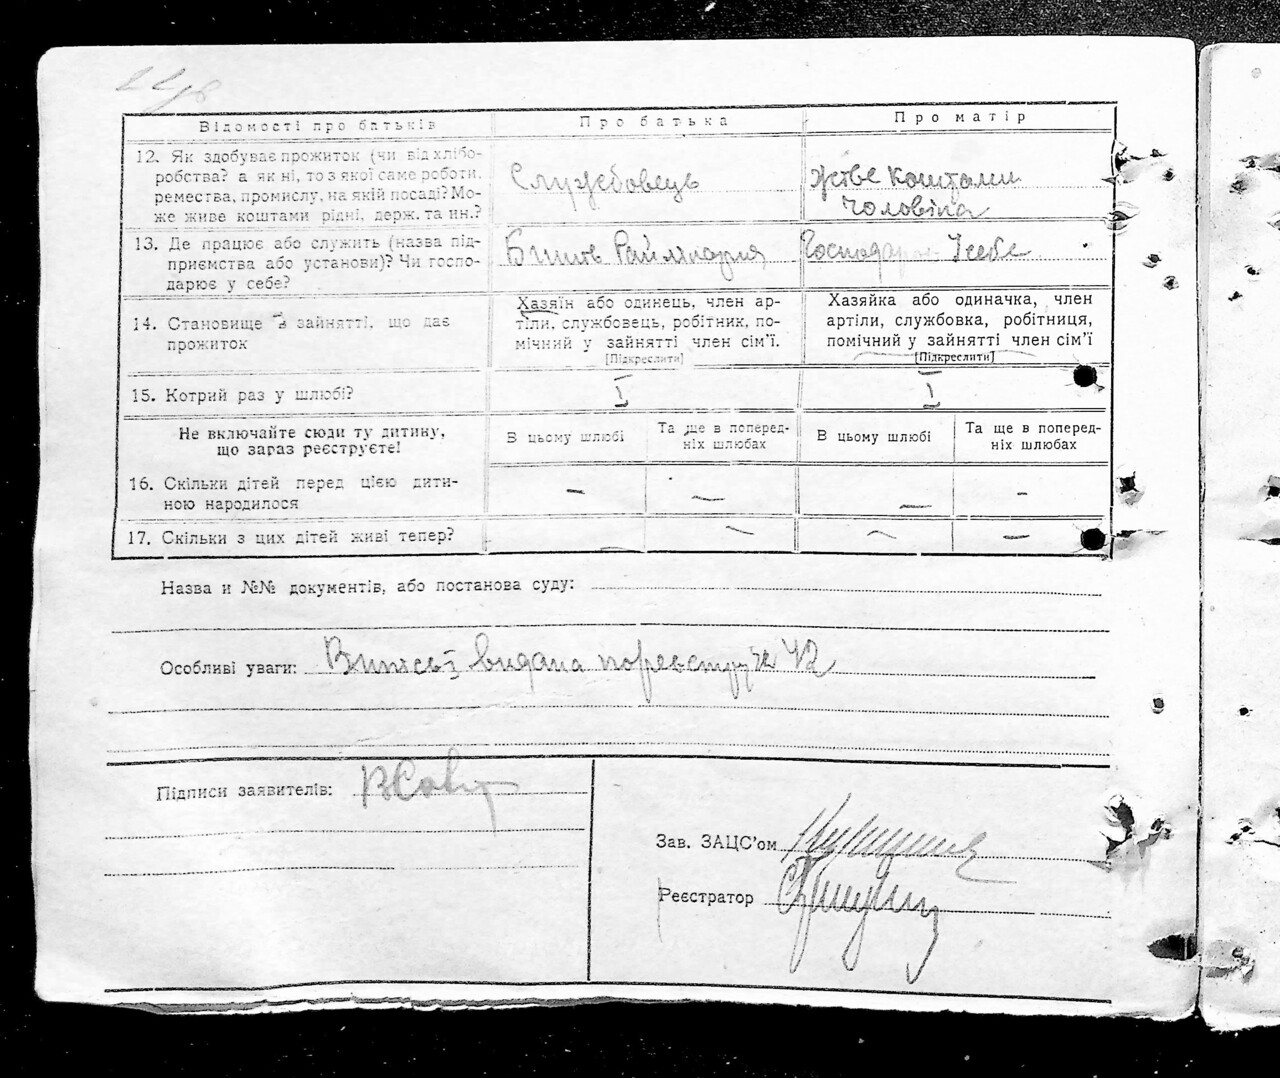 Відомості про батьків
Про батька
Про матір
12. Як здобуває прожиток (чи від хлібо-
робства? а як ні, то з якої саме роботи,
ремества, промислу, на якій посаді? Мо-
же живе коштами рідні, держ. та ин.?
Службовець
живе коштами
чоловіка
13. Де працює або служить (назва під-
приємства або установи)? Чи госпо-
дарює у себе?
Господарює у себе
14. Становище в зайнятті, що дає
прожиток
Хазяїн або одинець, член ар-
тіли, службовець, робітник, по-
мічний у зайнятті член сім'ї.
[Підкреслити]
Хазяйка або одиначка, член
артіли, службовка, робітниця,
помічний у зайнятті член сім'ї
[Підкреслити]
15. Котрий раз у шлюбі?
I
I
Не включайте сюди ту дитину,
що зараз реєструєте!
В цьому шлюбі
Та ще в поперед-
ніх шлюбах
В цьому шлюбі
Та ще в поперед-
ніх шлюбах
16. Скільки дітей перед цією дити-
ною народилося
—
—
—
—
17. Скільки з цих дітей живі тепер?
—
—
—
—
Назва и №№ документів, або постанова суду:
Особливі уваги: видана по реєстру № 42
Підписи заявителів:
Зав. ЗАЦС'ом
Реєстратор